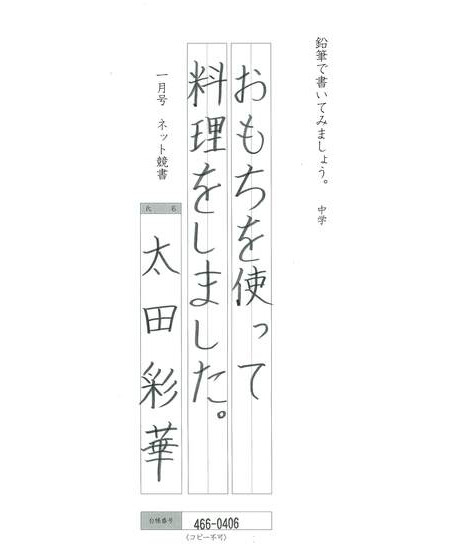 鉛筆で書いてみましょう。 中学
おもちを使って
料理をしました。
一月号 ネット競書
氏名
太田彩華
台帳番号 466-0406
(コピー不可)